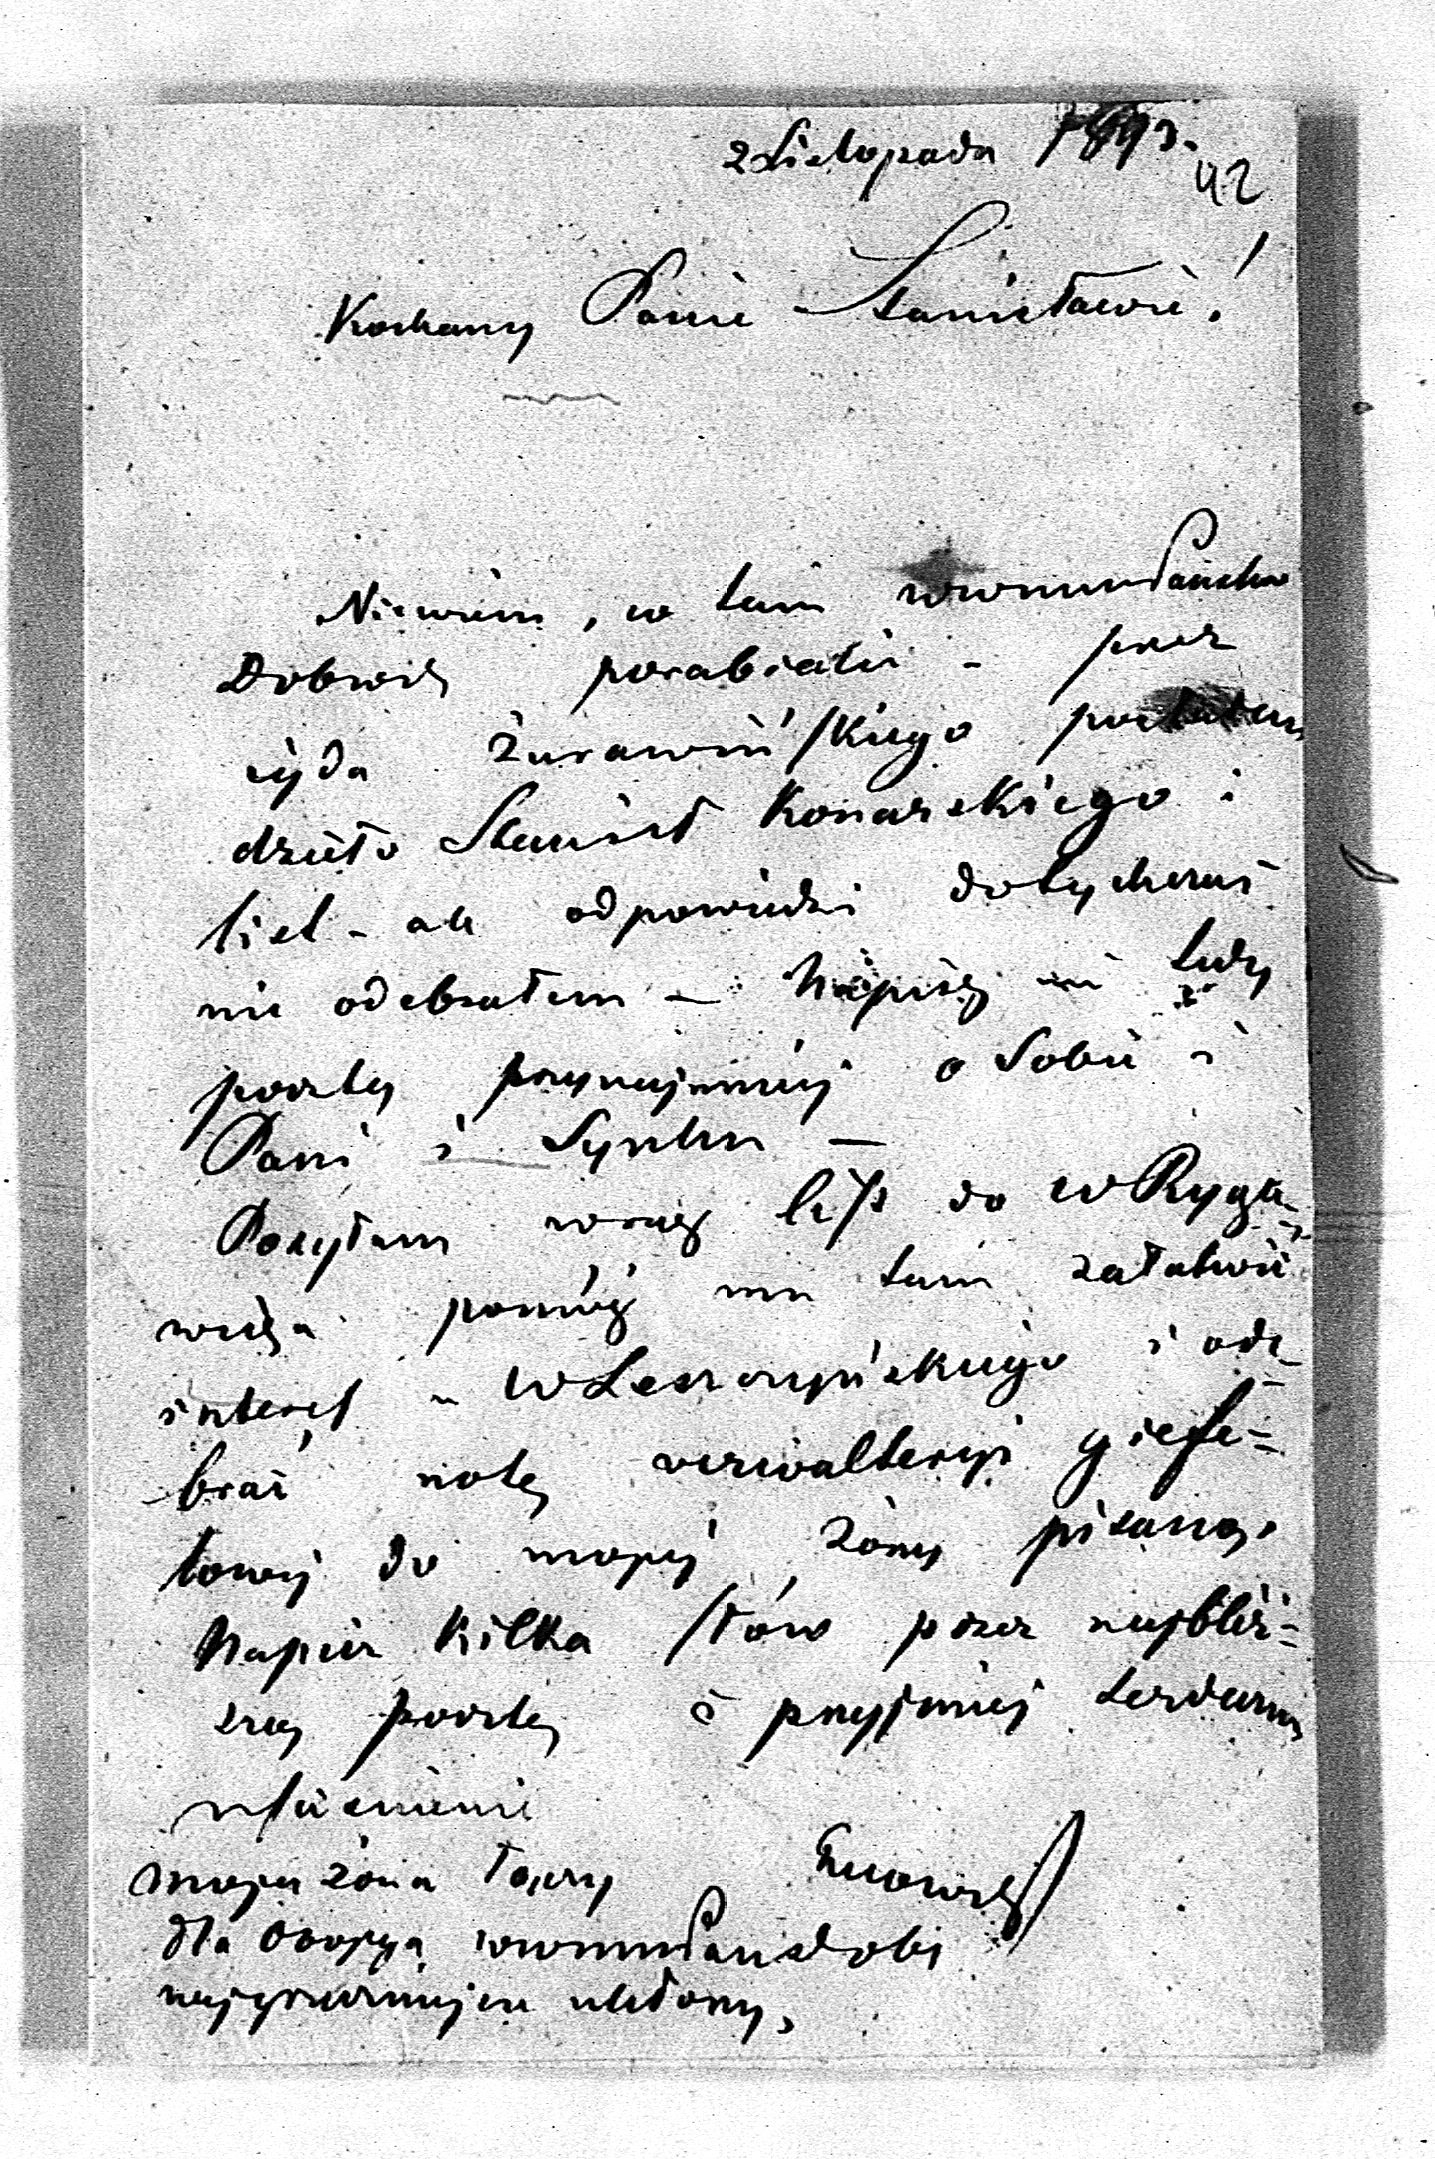 2 Listopada 1893.
42
Kochany Panie Stanisławie!
Niewiem, co tam wwmm Państwo
Dobrodz porabiacie - przez
żyda Żurawińskiego posłałem
dzieło Stanisł Konarskiego i
list - ale odpowiedzi dotychczas
nie odebrałem - Napisz mi tedy
pocztą przynajmniej o Sobie i
Pani i Synku -
Posyłam wraz list do W Rygie-
wicza pomóż mu tam załatwić
interes u W Leszczyńskiego i ode-
brać notę
towej do mojej żony pisaną.
Napisz kilka słów przez najbliż=
szą pocztę i przyjmiej serdeczne
uściśnienie
moja żona łączy
dla obojga wwmm Państwa Dobr
najgrzeczniejsze ukłony,